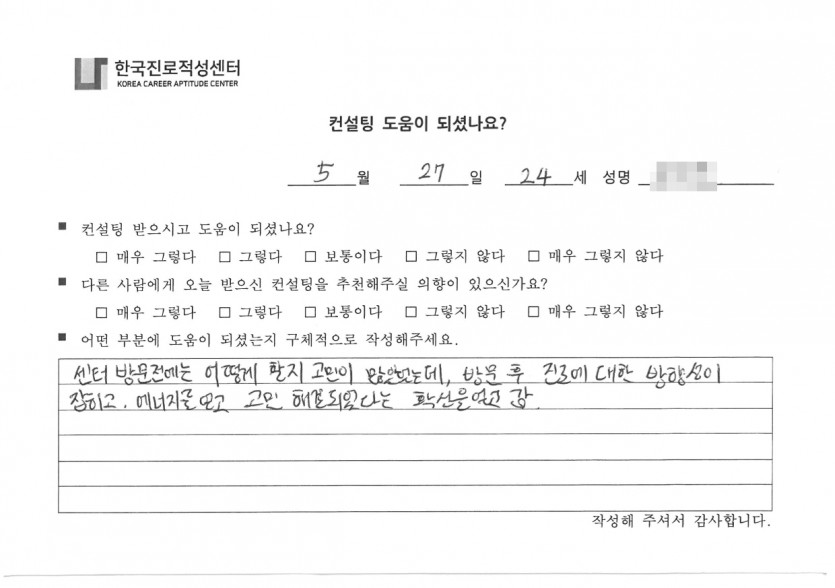 한국진로적성센터
KOREA CAREER APTITUDE CENTER
컨설팅 도움이 되셨나요?
5 월 27 일 24 세 성명
■ 컨설팅 받으시고 도움이 되셨나요?
□ 매우 그렇다 □ 그렇다 □ 보통이다 □ 그렇지 않다 □ 매우 그렇지 않다
■ 다른 사람에게 오늘 받으신 컨설팅을 추천해주실 의향이 있으신가요?
□ 매우 그렇다 □ 그렇다 □ 보통이다 □ 그렇지 않다 □ 매우 그렇지 않다
■ 어떤 부분에 도움이 되셨는지 구체적으로 작성해주세요.
센터 방문전에는 어떻게 할지 고민이 많았었는데, 방문 후 진로에 대한 방향성이
잡히고. 에너지를 얻고 고민 해결되었다는 확신을 얻고 감.
작성해 주셔서 감사합니다.